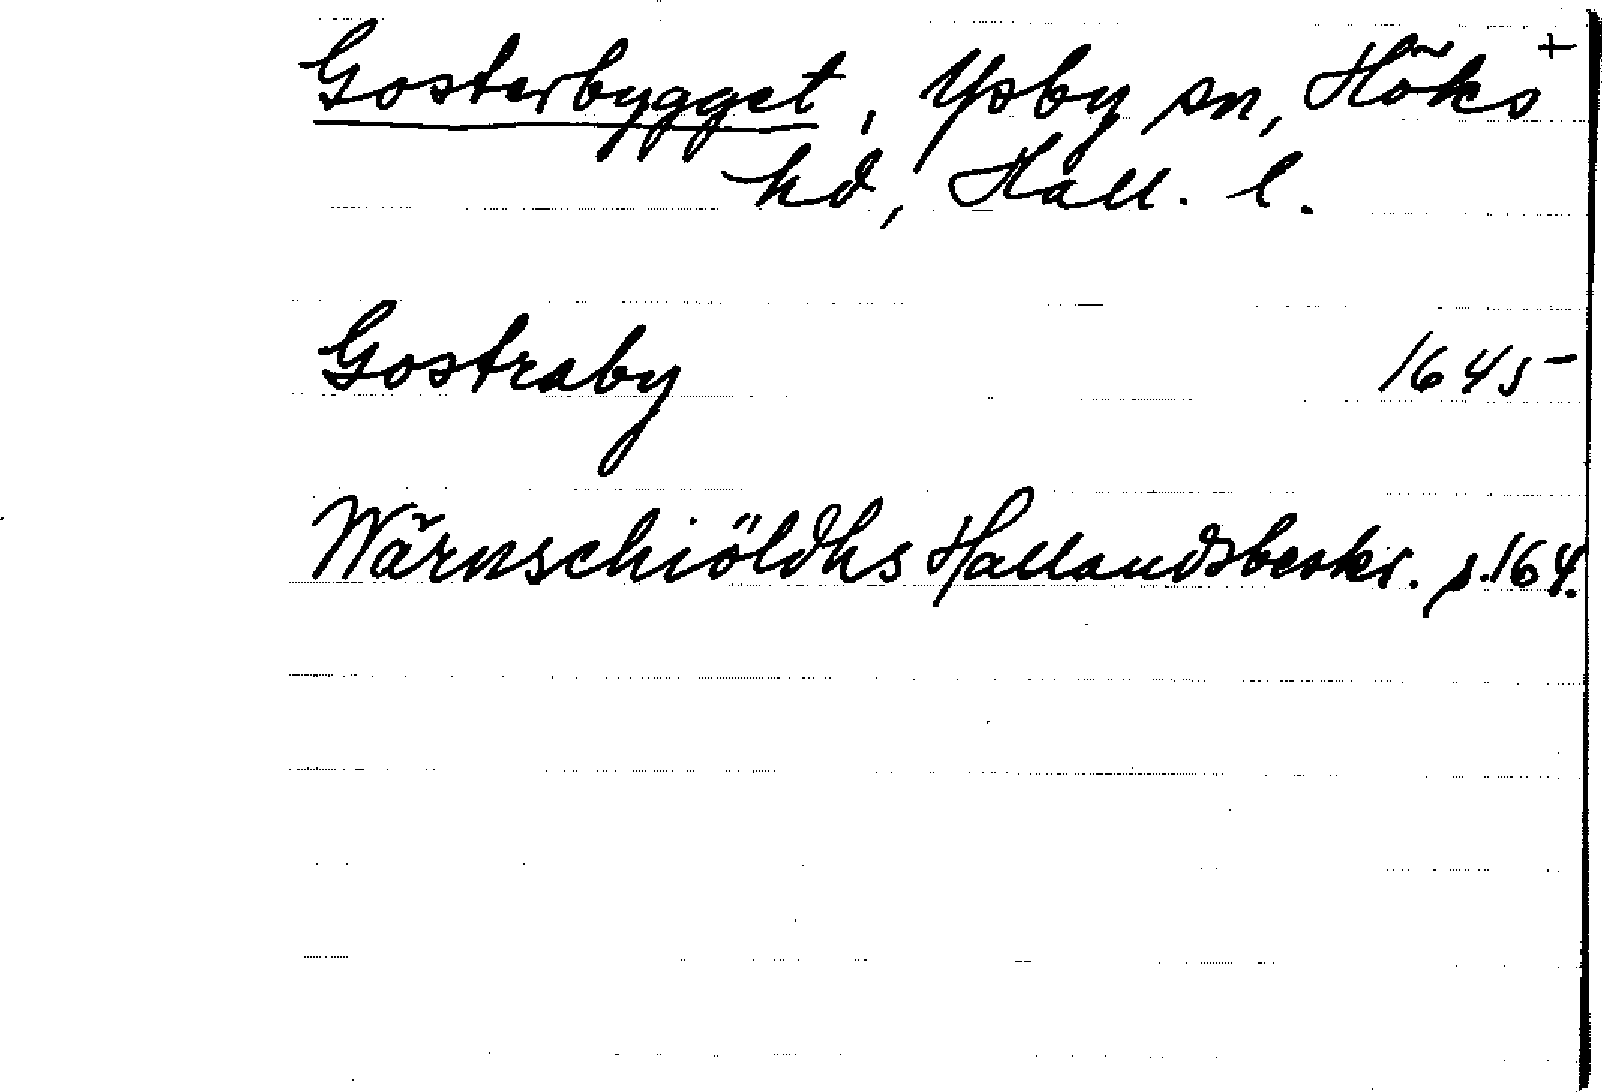 Gosterbygget, Ysby sn, Höks +
hd, Hall. l.
Gostraby 1645
Wärnschiöldhs Hallandsbeskr. s. 164.